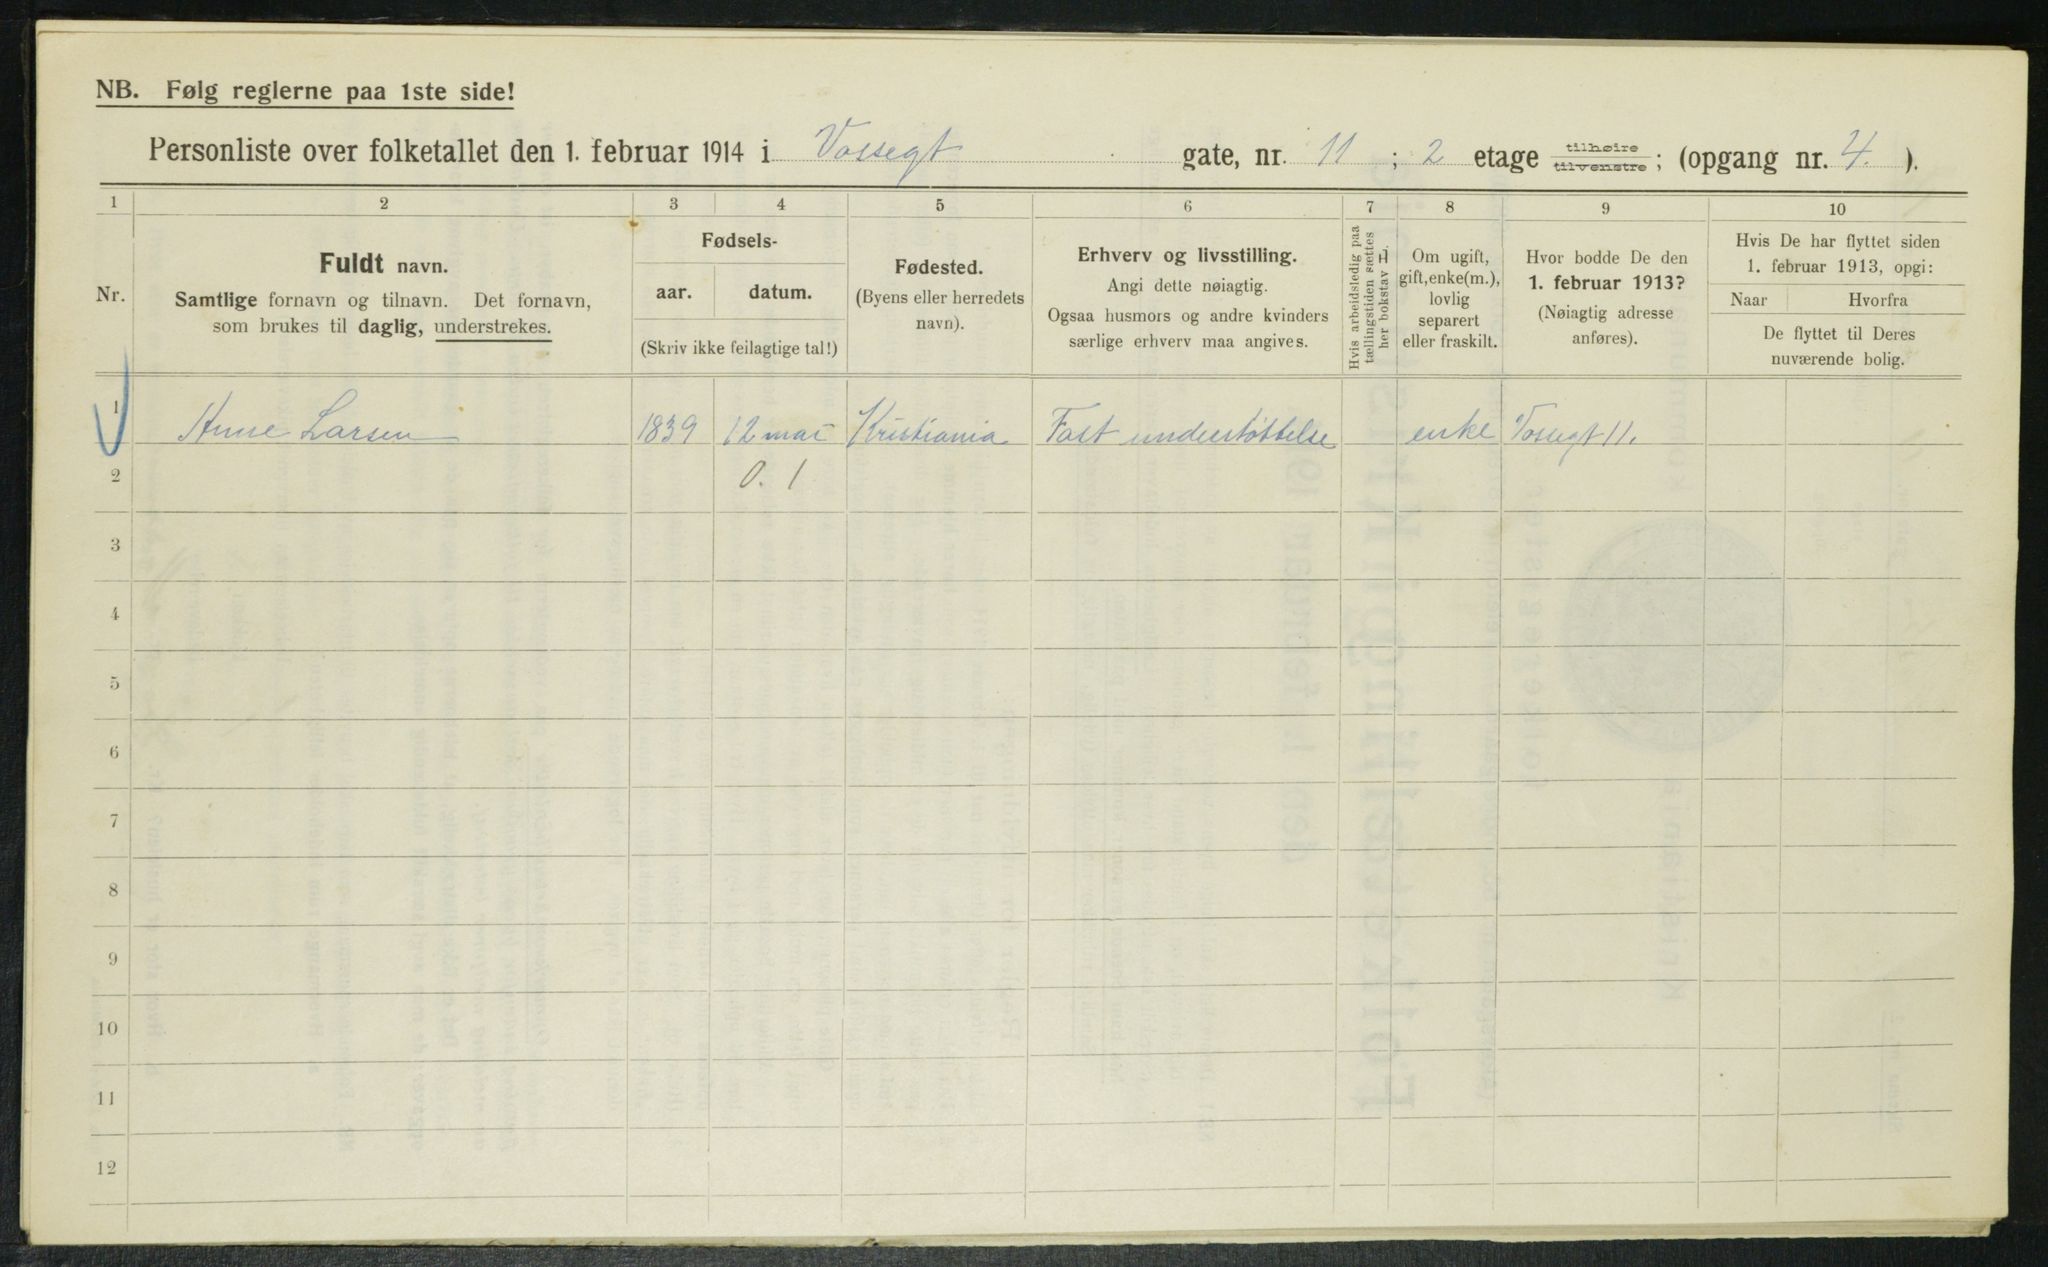 NB. Følg reglerne paa 1ste side!
Personliste over folketallet den 1. februar 1914 i Vossegt gate, nr. 11 ; 2 etage tilhøire tilvenstre ; (opgang nr. 4. ).
1 2 3 4 5 6 7 8 9 10
Nr.
Fuldt navn.
Samtlige fornavn og tilnavn. Det fornavn,
som brukes til daglig, understrekes.
Fødsels-
aar. datum.
(Skriv ikke feilagtige tal!)
Fødested.
(Byens eller herredets
navn).
Erhverv og livsstilling.
Angi dette nøiagtig.
Ogsaa husmors og andre kvinders
særlige erhverv maa angives.
Hvis arbeidsledig paa
tællingstiden sættes
her bokstav L.
Om ugift,
gift, enke(m.),
lovlig
separert
eller fraskilt.
Hvor bodde De den
1. februar 1913?
(Nøiagtig adresse
anføres).
Hvis De har flyttet siden
1. februar 1913, opgi:
Naar Hvorfra
De flyttet til Deres
nuværende bolig.
1 Anne Larsen 1839 12 mai Kristiania Fast understöttelse enke Vossegt 11.
2 0. 1
3
4
5
6
7
8
9
10
11
12